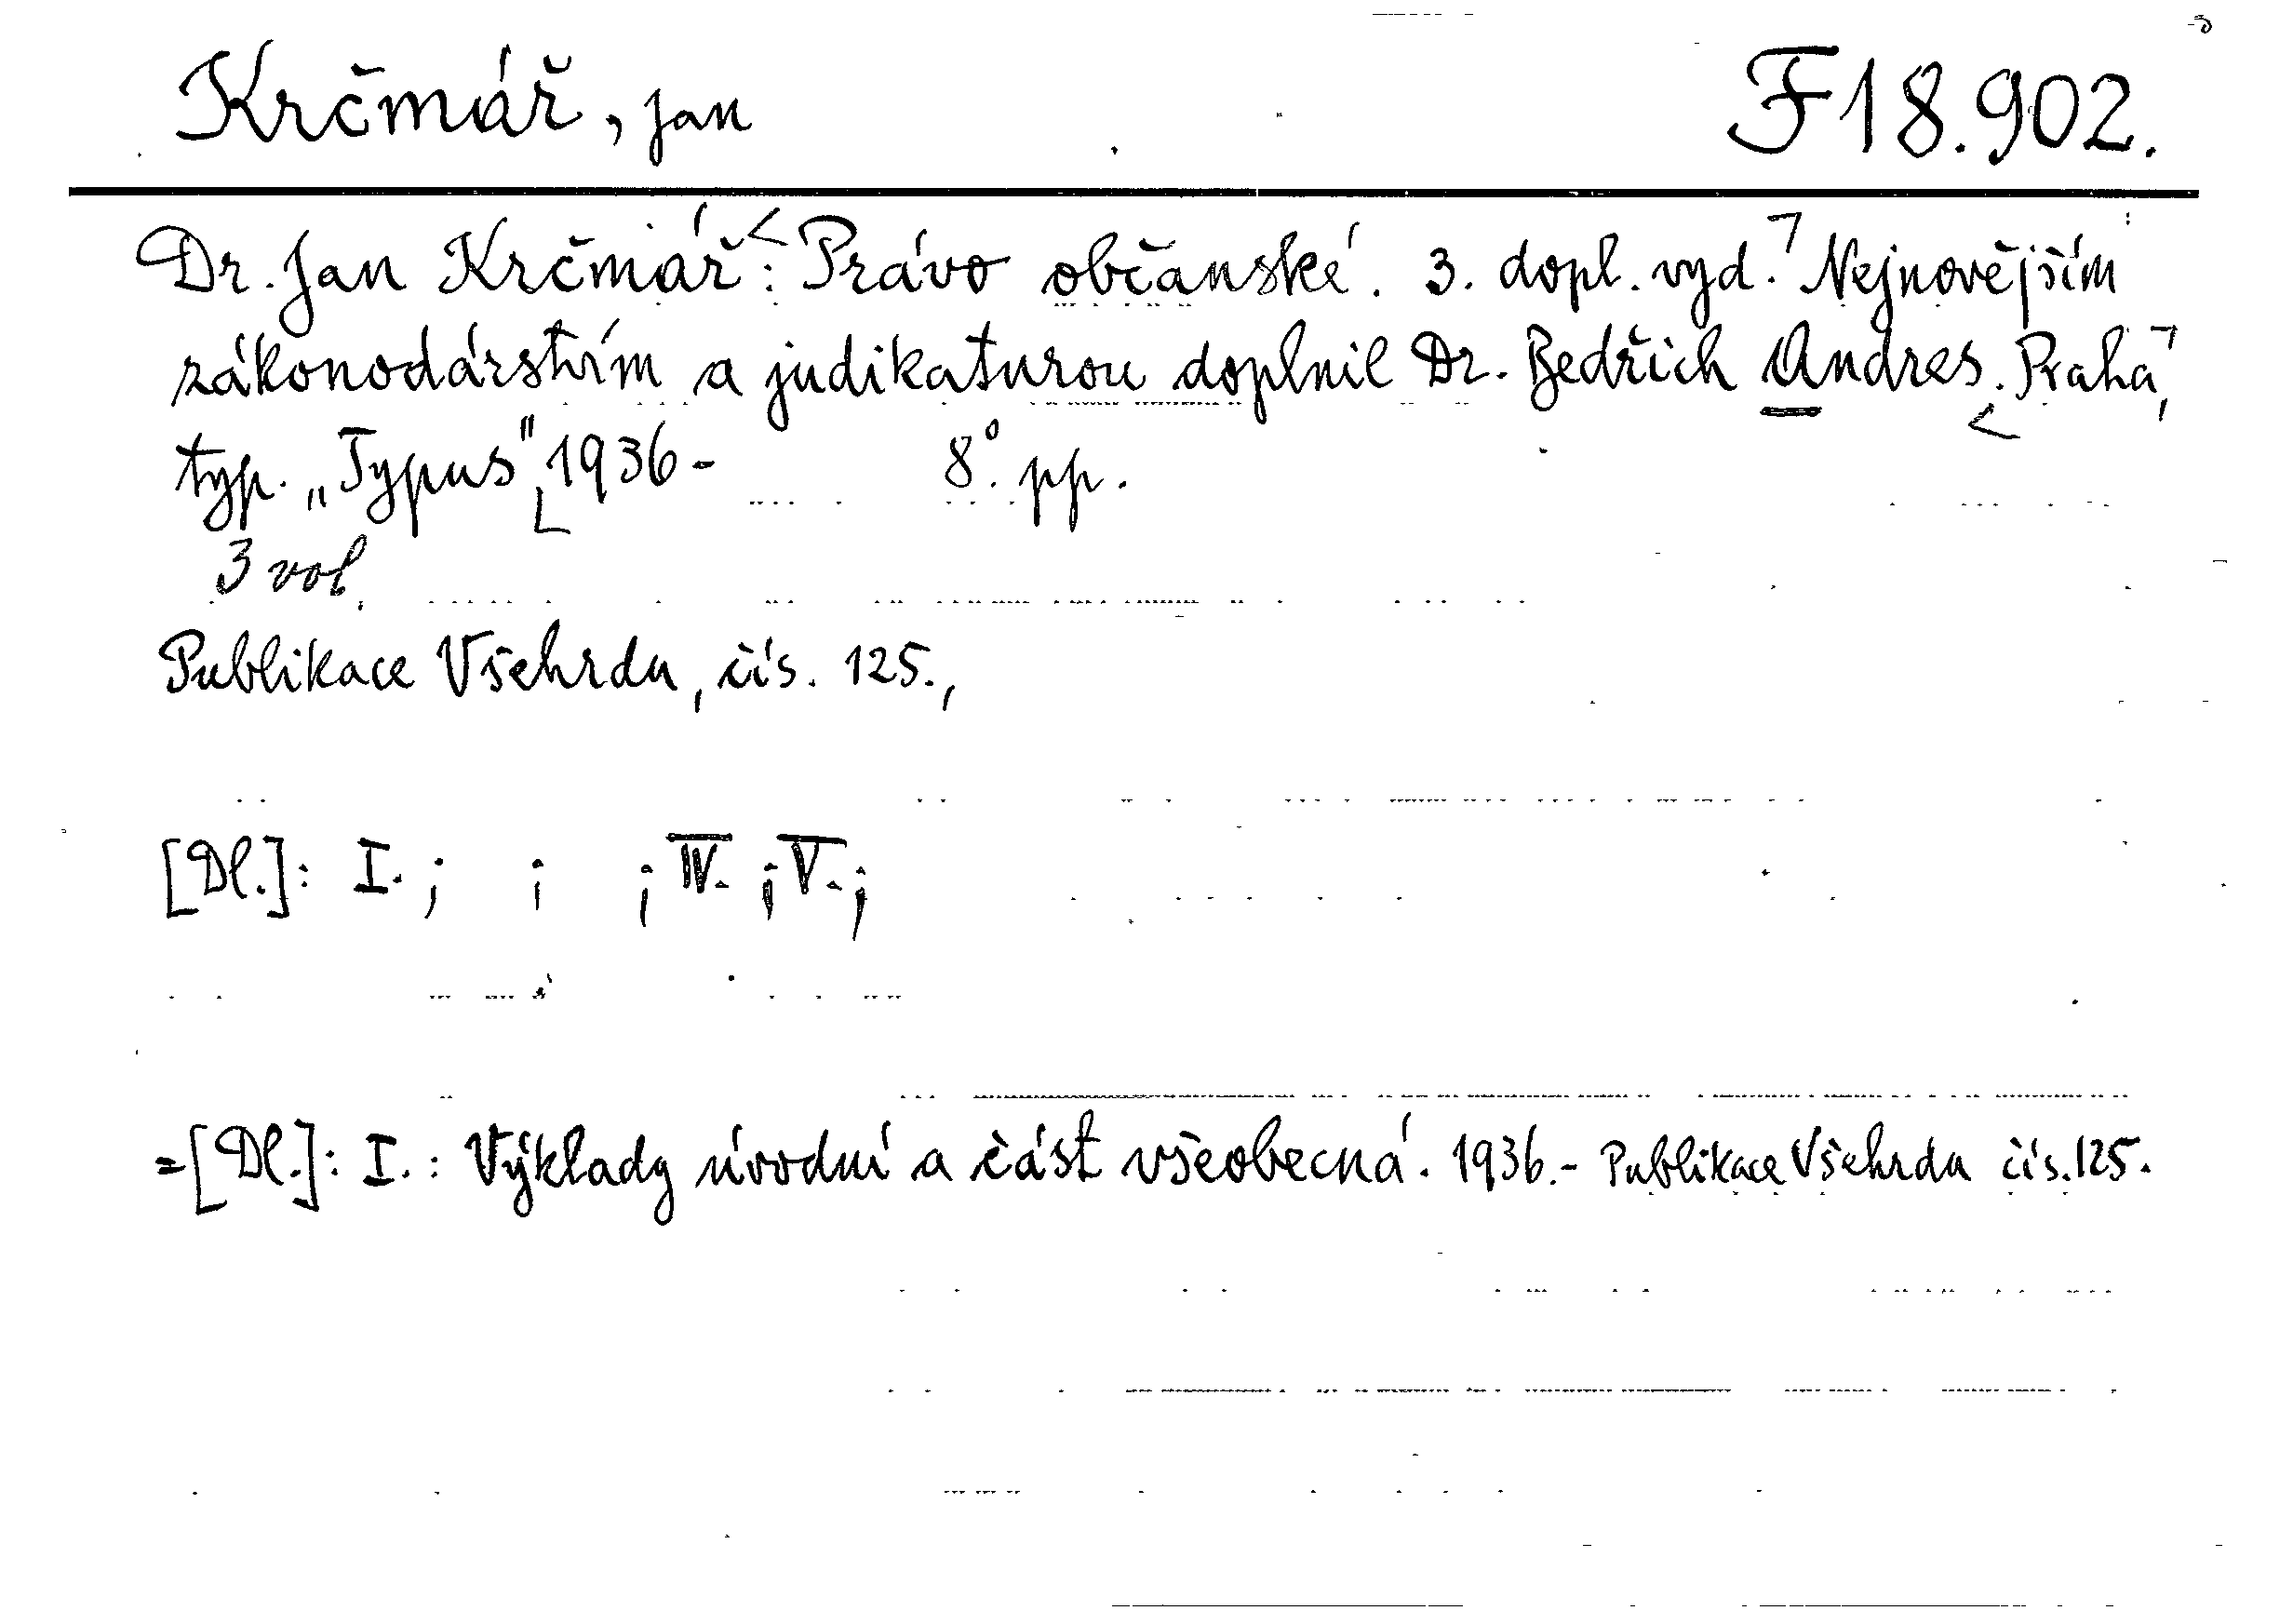 Krčmář, Jan F18.902.
Dr. Jan Krčmář: Právo občanské. 3. dopl. vyd. Nejnovějším
zákonodárstvím a judikaturou doplnil Dr. Bedřich Andres. Praha,
typ. „Typus" 1936- 8°. pp.
3 vol.
Publikace Všehrdu, čís. 125.,
[Dl.]: I. ; ; ; IV. ; V. ;
=[Dl.]: I. : Výklady úvodní a část všeobecná. 1936.- Publikace Všehrdu čís. 125.